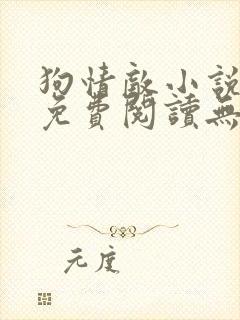 狗情敵小說
免費閱讀無
元度